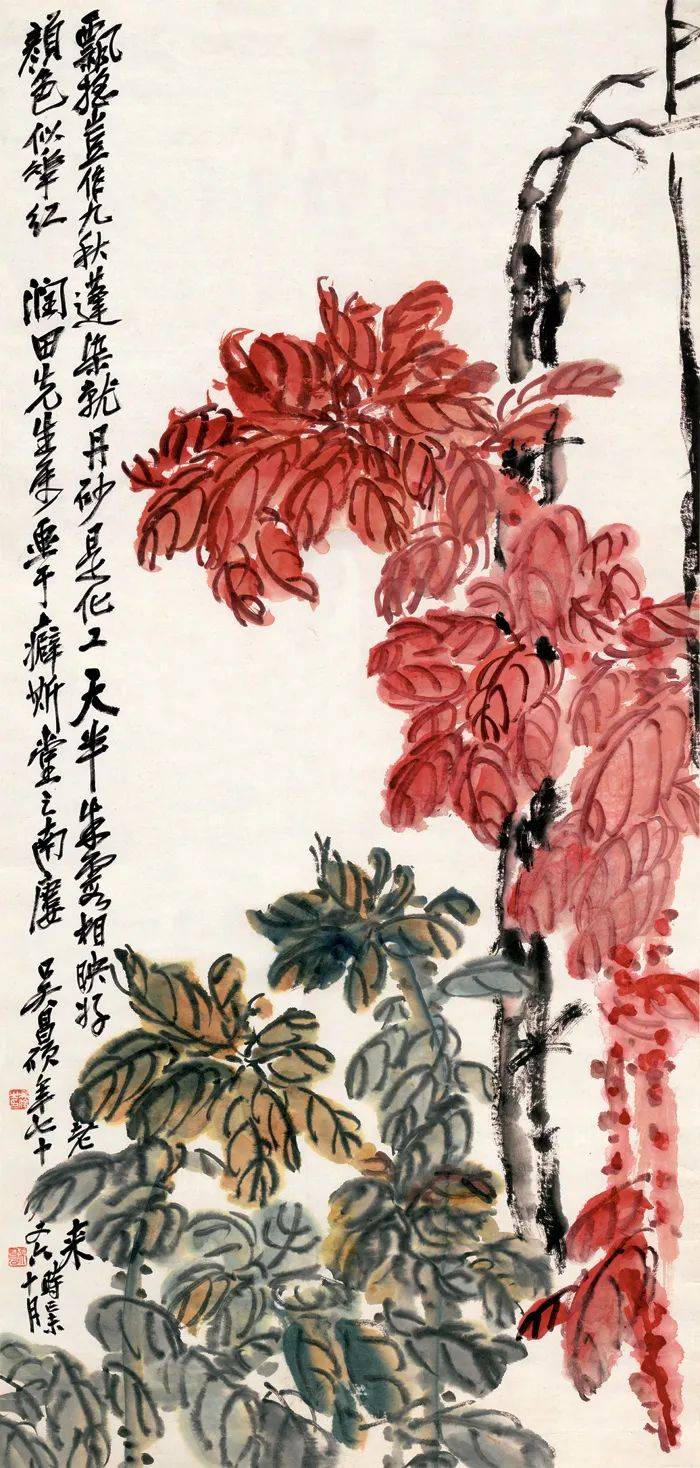 飄搖豈作九秋蓬染就丹砂是化工天半朱霞相映好老來
顏色似華紅潤田先生屬畫于癖斯堂之南廔吳昌碩年七十又六時己未十月